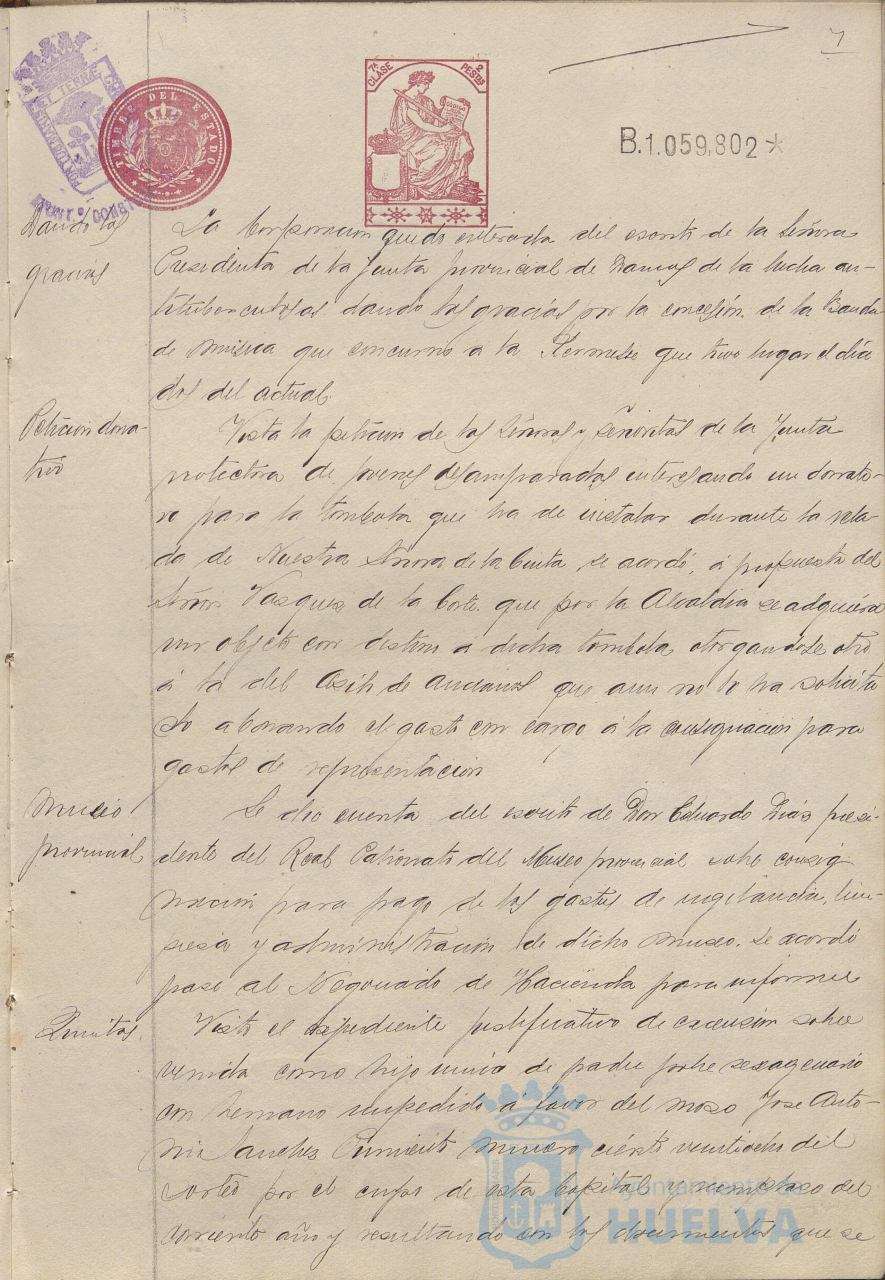 7
7ª CLASE 2 PESTAS
CODIGO
TIMBRE DEL ESTADO
PORTUS MARIS ET TERRÆ CUSTODIA
B.1.059,802*
Dando las
gracias
La Corporacion quedó enterada del escrito de la Señora
Presidenta de la Junta provincial de Damas de la lucha an-
tituberculosas dando las gracias por la concesión de la Banda
de musica que concurrio a la Kermese que tuvo lugar el dia
dos del actual.
Peticion dona-
tivo
Vista la peticion de las Señoras y Señoritas de la Junta
protectora de jovenes desamparadas interesando un donati-
vo para la tombola que ha de instalar durante la vela-
da de Nuestra Señora de la Cinta se acordó, á propuesta del
Señor Vazquez de la Corte que por la Alcaldia se adquiera
un objeto con destino a dicha tombola otorgandose otro
á la del Asilo de Ancianos que aun no lo ha solicita
do abonando el gasto con cargo á la consignacion para
gastos de representacion
Museo
provincial
Se dio cuenta del escrito de Don Eduardo Diaz presi-
dente del Real Patronato del Museo provincial sobre consig
nacion para pago de los gastos de vigilancia, lim-
pieza y administración de dicho museo. se acordó
pase al Negociado de Hacienda para informe
Quintas.
Visto el expediente justificativo de excension sobre
venida como hijo unico de padre pobre sexagenario
con hermano impedido á favor del mozo Jose Anto-
nio Sanchez Pimiento numero ciento veintiocho del
sorteo por el cupo de esta Capital y reemplazo del
corriente año y resultando con los documentos que se
Ayuntamiento de
HUELVA